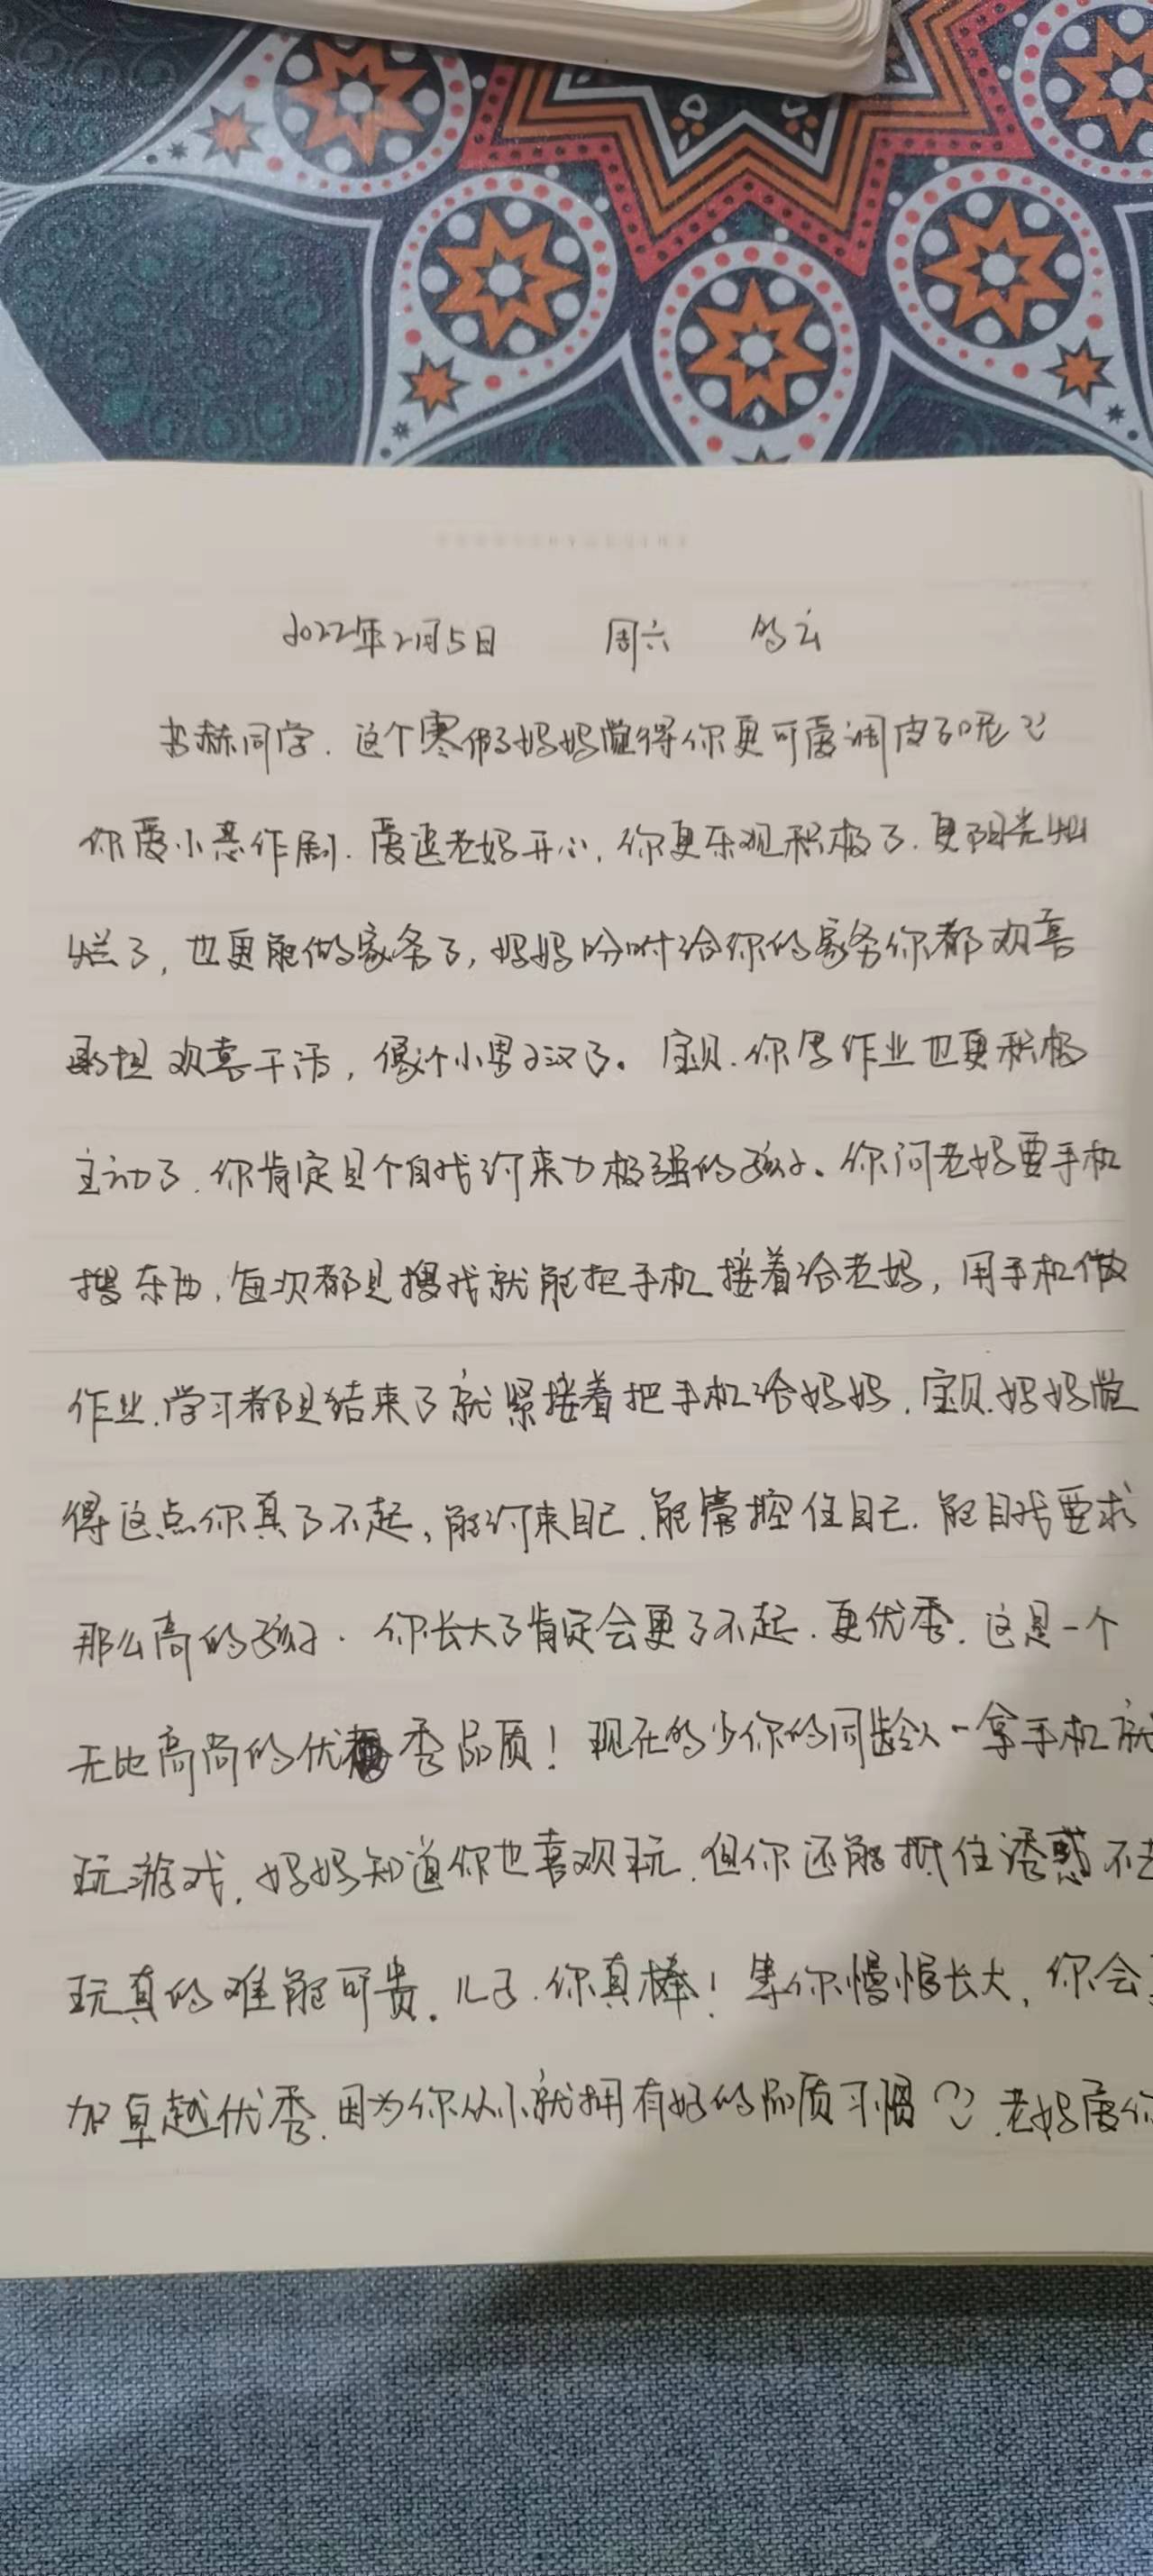 2022年2月5日 周六 多云
书赫同学.这个寒假妈妈觉得你更可爱调皮了呢
你爱小恶作剧.爱逗老妈开心,你更乐观积极了.更阳光灿
烂了,也更能做家务了,妈妈吩咐给你的家务你都欢喜
承担欢喜干活,像个小男子汉了。宝贝.你写作业也更积极
主动了.你肯定是个自我约束力极强的孩子。你问老妈要手机
搜东西,每次都是搜我就能把手机接着给老妈,用手机做
作业.学习都是结束了就紧接着把手机给妈妈.宝贝.妈妈觉
得这点你真了不起,能约束自己.能掌控住自己.能自我要求
那么高的孩子.你长大了肯定会更了不起.更优秀.这是一个
无比高尚的优秀品质!现在的少你的同龄人一拿手机就
玩游戏.妈妈知道你也喜欢玩.但你还能抵住诱惑不去
玩真的难能可贵.儿子.你真棒!等你慢慢长大,你会
加卓越优秀.因为你从小就拥有好的品质习惯.老妈爱你